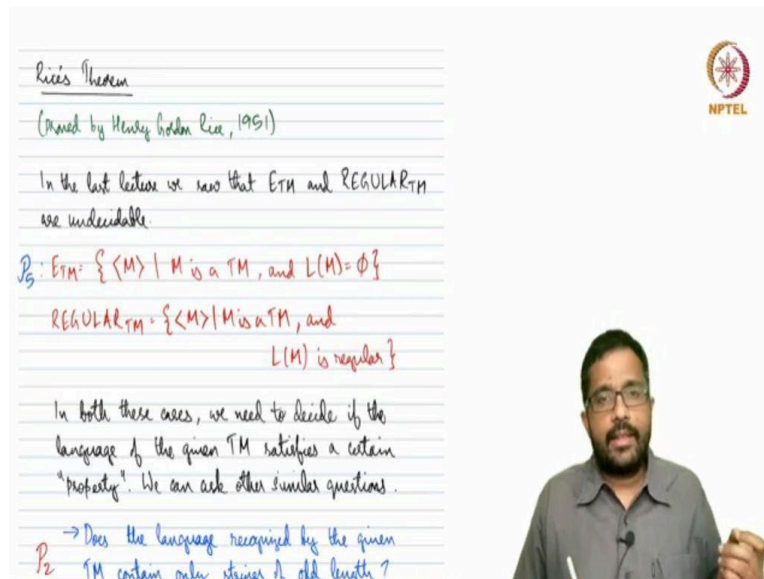 Rice's Theorem
NPTEL
(proved by Henry Gordon Rice, 1951)
In the last lecture we saw that E_TM and REGULAR_TM
are undecidable.
P₅: E_TM = { <M> | M is a TM, and L(M) = ∅ }
REGULAR_TM = { <M> | M is a TM, and
L(M) is regular }
In both these cases, we need to decide if the
language of the given TM satisfies a certain
"property". We can ask other similar questions.
→ Does the language recognized by the given
P₂ TM contain only strings of odd length?